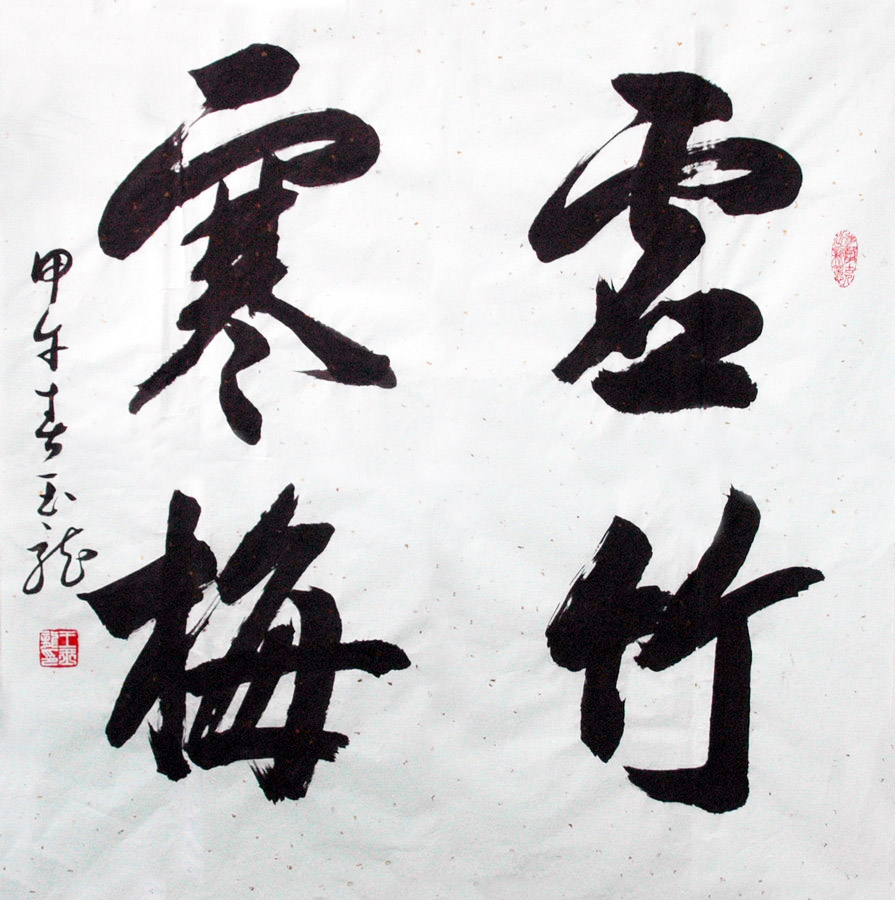 雪竹
寒梅
甲午春玉龍